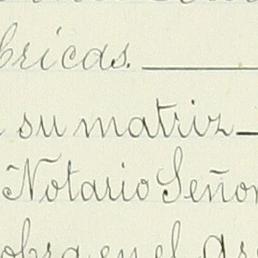 bricas.
su matriz
Notario Señor
obra en el